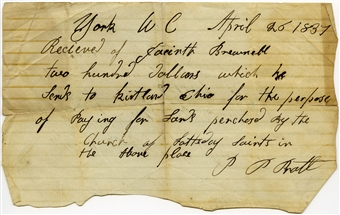 York U C April 26 1837
Recieved of Jacinth Brownell
two hundred Dollars which he
Sends to Kirtland Ohio for the perpose
of Paying for Land perchesed by the
Church of Latteday Saints in
the above place
P P Pratt